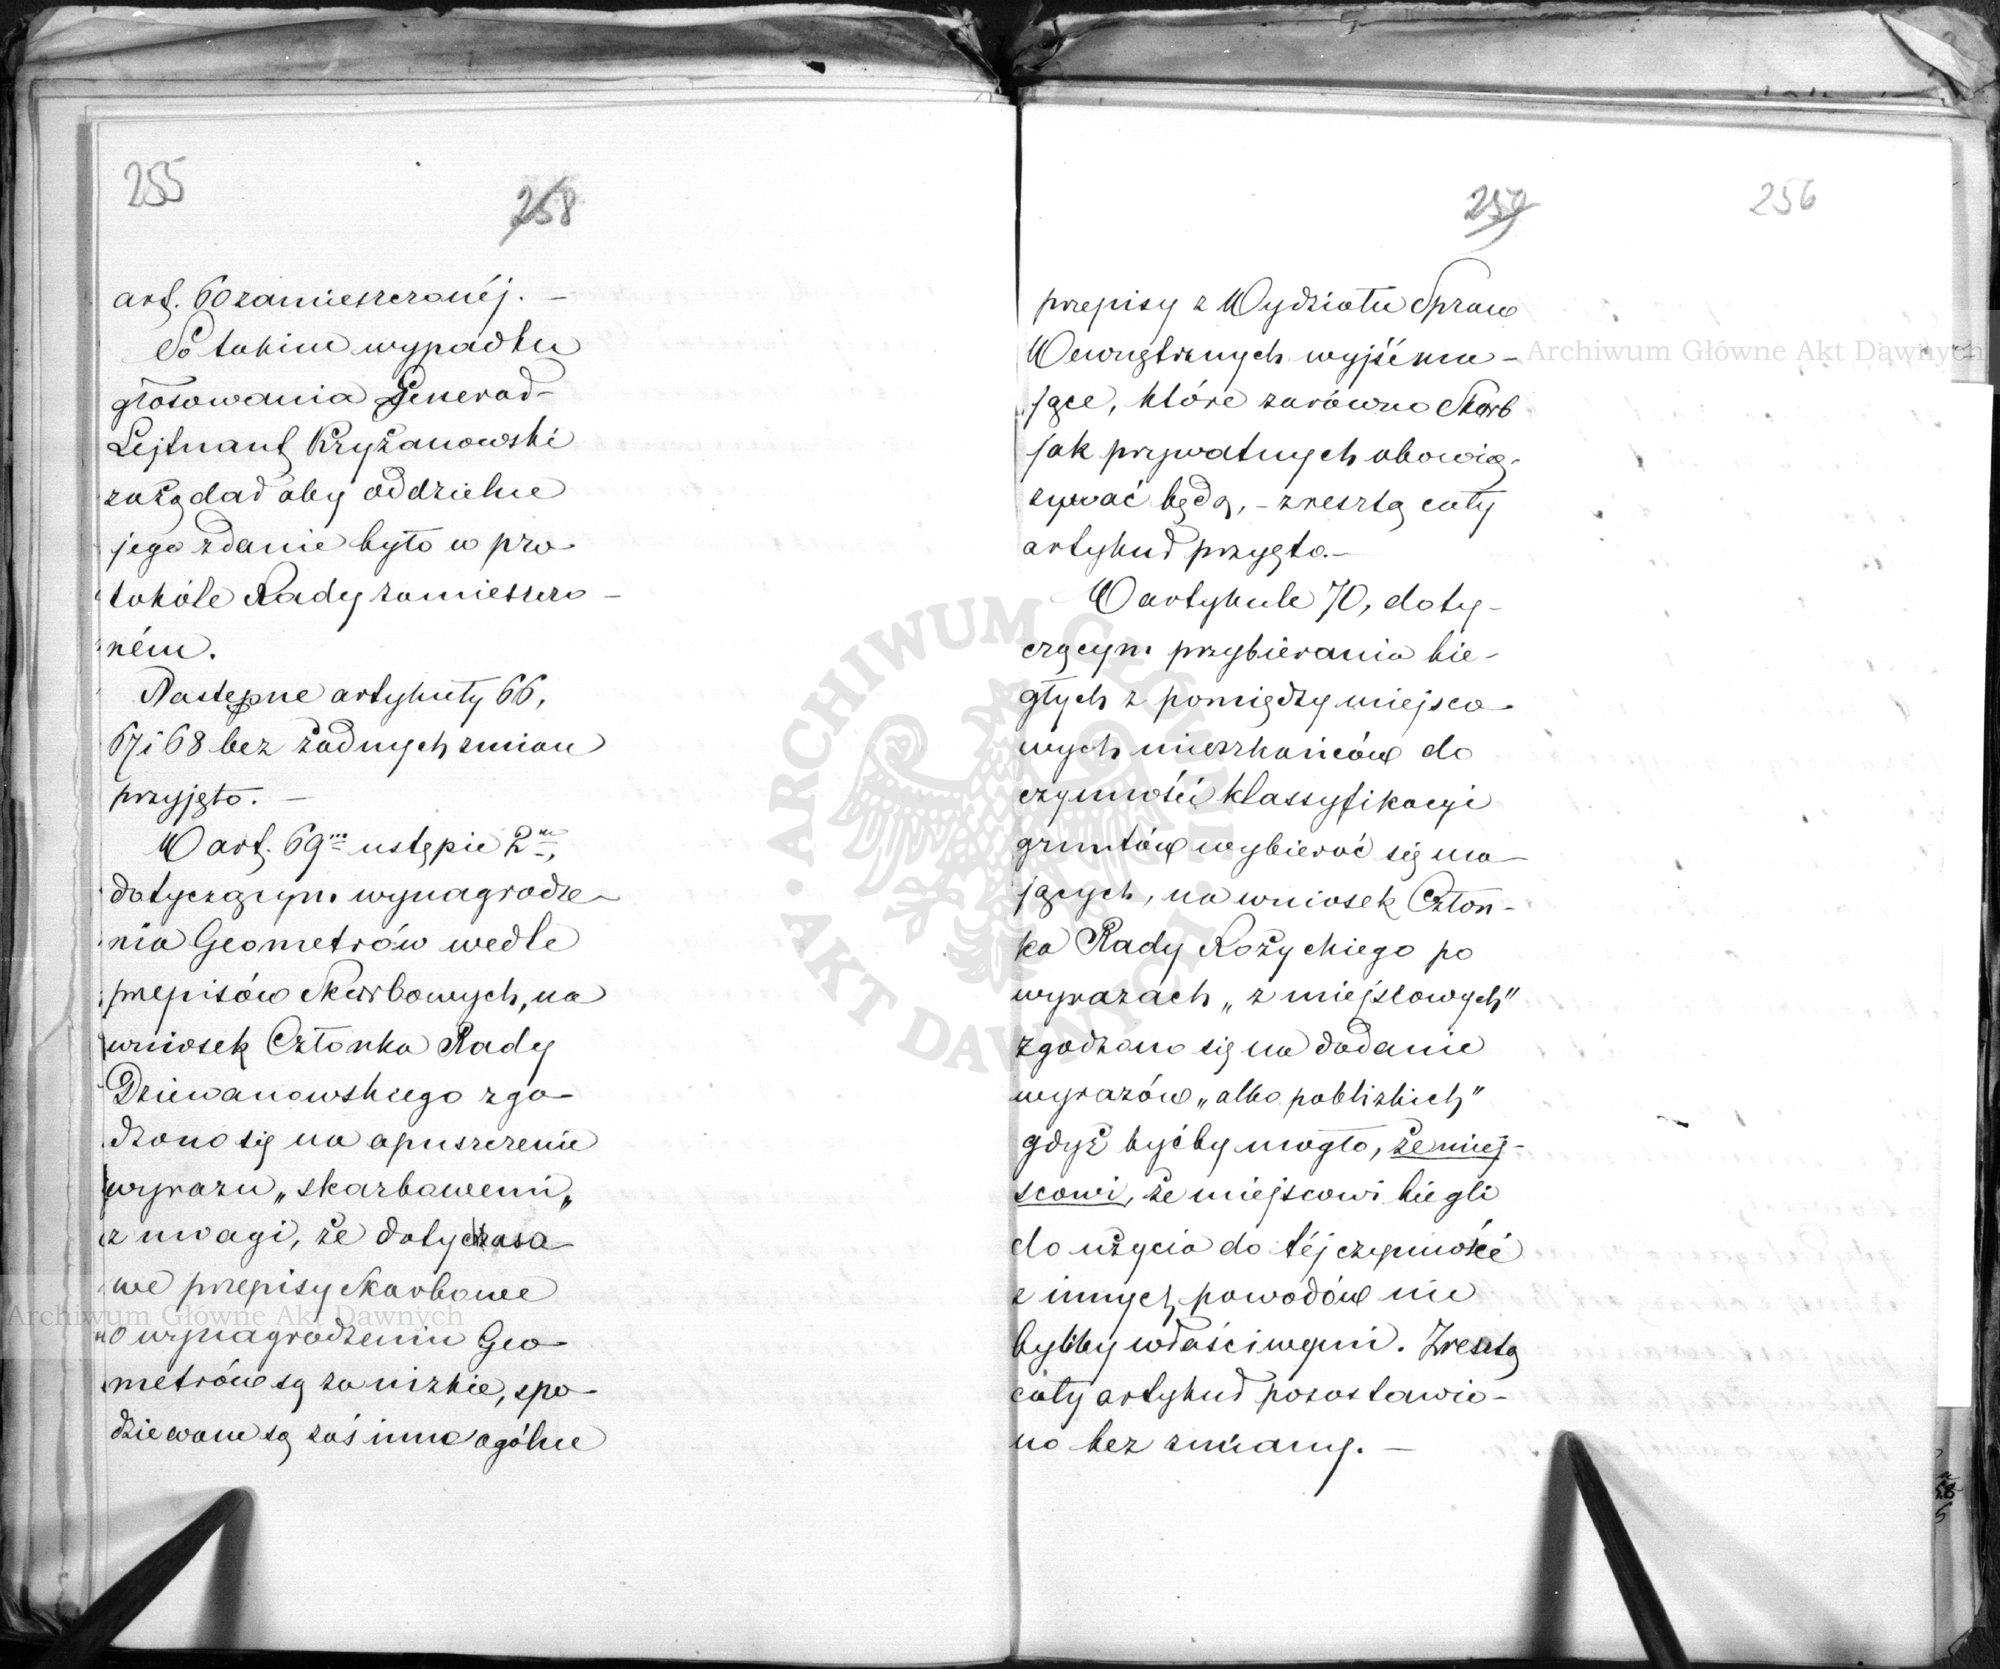 255
258
art. 60 zamieszczonéj. —
Po takim wypadku
głosowania Generał-
Lejtnant Kryżanowski
zażądał aby oddzielne
jego zdanie było w pro-
tokóle Rady zamieszczo-
ném.
Następne artykuły 66,
67 i 68 bez żadnych zmian
przyjęto. —
W art. 69m ustępie 2m,
dotyczącym wynagrodze-
nia Geometrów wedle
przepisów Skarbowych, na
wniosek Członka Rady
Dziewanowskiego zgo-
dzono się na opuszczenie
wyrazu „skarbowemi„
z uwagi, że dotychczaso-
we przepisy Skarbowe
o wynagrodzeniu Geo-
metrów są za nizkie, spo-
dziewane są zaś inne ogólne
259
256
przepisy z Wydziału Spraw
Wewnętrznych wyjść ma-
jące, które zarówno Skarb
jak prywatnych obowią-
zywać będą, – zresztą cały
artykuł przyjęto. —
W artykule 70, doty-
czącym przybierania bie-
głych z pomiędzy miejsco-
wych mieszkańców do
czynności klassyfikacyi
gruntów wybierać się ma-
jących, na wniosek Człon-
ka Rady Rożyckiego po
wyrazach „z miejscowych"
zgodzono się na dodanie
wyrazów „albo poblizkich"
gdyż byćby mogło, że miej-
scowi, że miejscowi biegli
do użycia do téj czynności
z innych powodów nie
byliby właściwymi. Zresztą
cały artykuł pozostawio-
no bez zmiany. —
Archiwum Główne Akt Dawnych
Archiwum Główne Akt Dawnych
ARCHIWUM GŁÓWNE • AKT DAWNYCH •